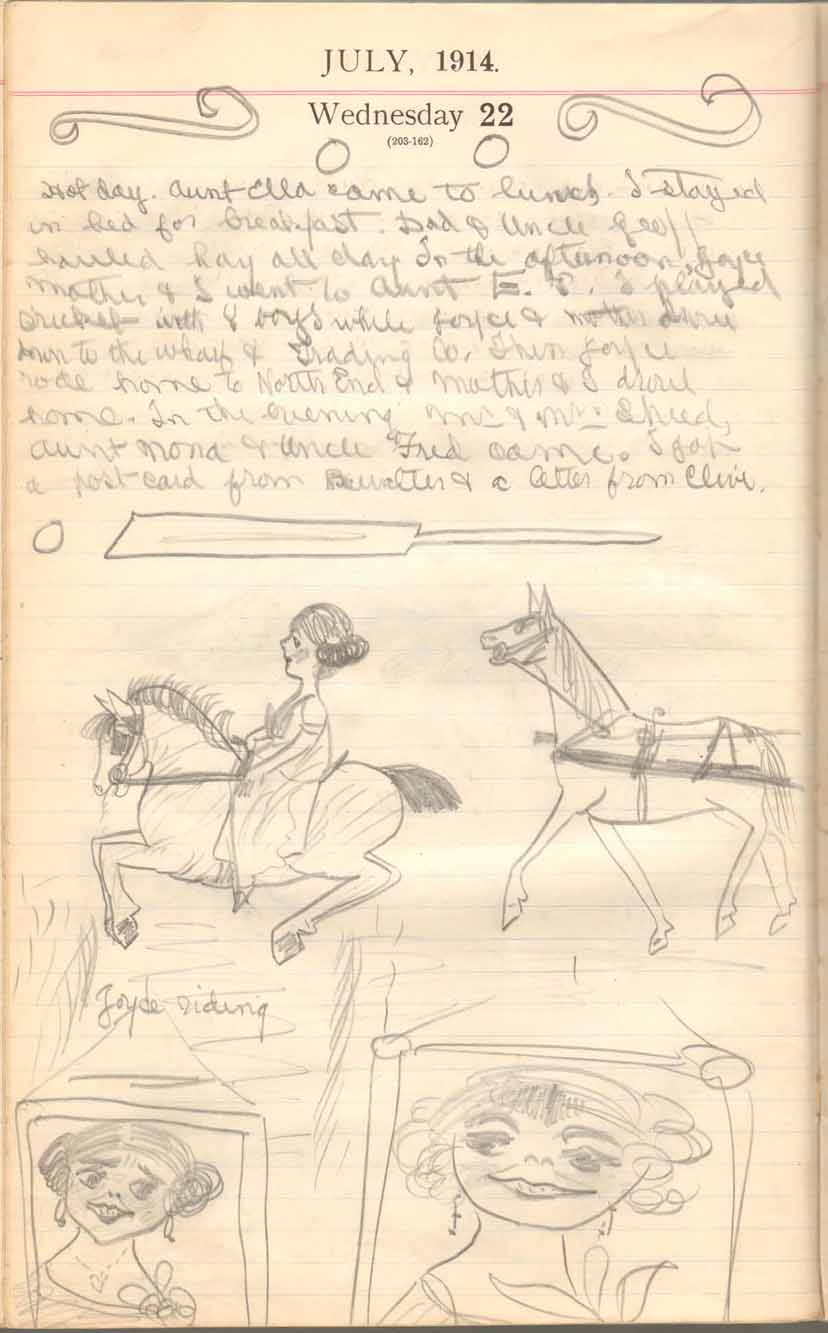 JULY, 1914.
Wednesday 22
(203-162)
Hot day. Aunt Ella came to lunch. I stayed
in bed for breakfast. Dad & Uncle Geoff
hauled hay all day. In the afternoon, Joyce
mother & I went to Aunt E. P. I played
cricket with 8 boys while Joyce & mother drove
down to the wharf & Trading Co. Then Joyce
rode home to North End & mother & I drove
home. In the evening Mr & Mrs Speed,
Aunt Nona & Uncle Fred came. I got
a post card from & a letter from Clive.
Joyce riding